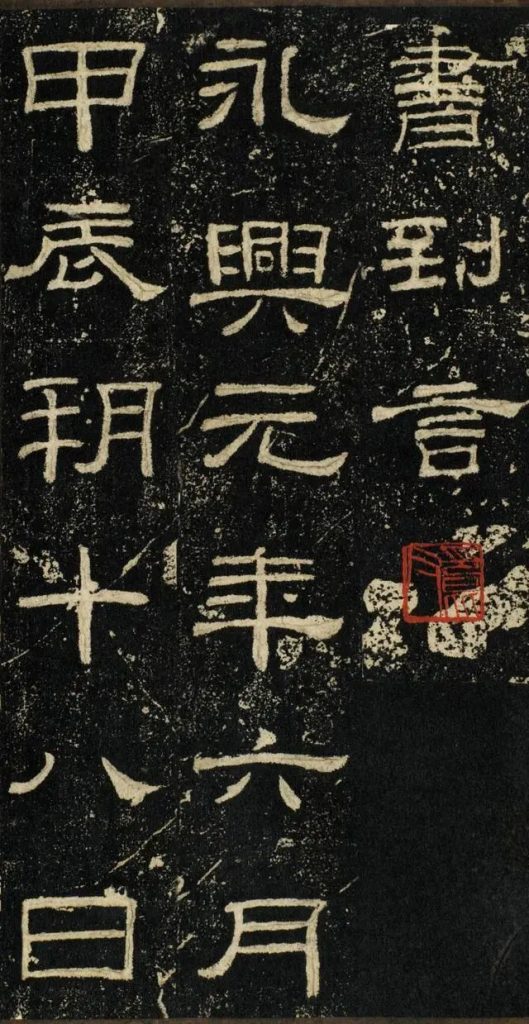 書到言
永興元年六月
甲辰朔十八日